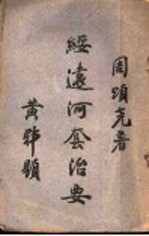 周頌堯著
綏遠河套治要
黃郛題